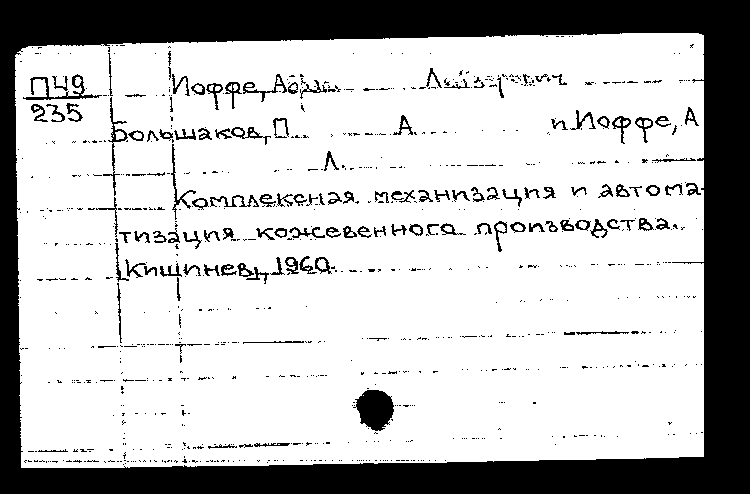 П49
235
Иоффе, Абрам Лейзерович
Большаков, П. А. и Иоффе, А.
Л.
Комплексная механизация и автома-
тизация кожевенного производства.
Кишинев, 1960.